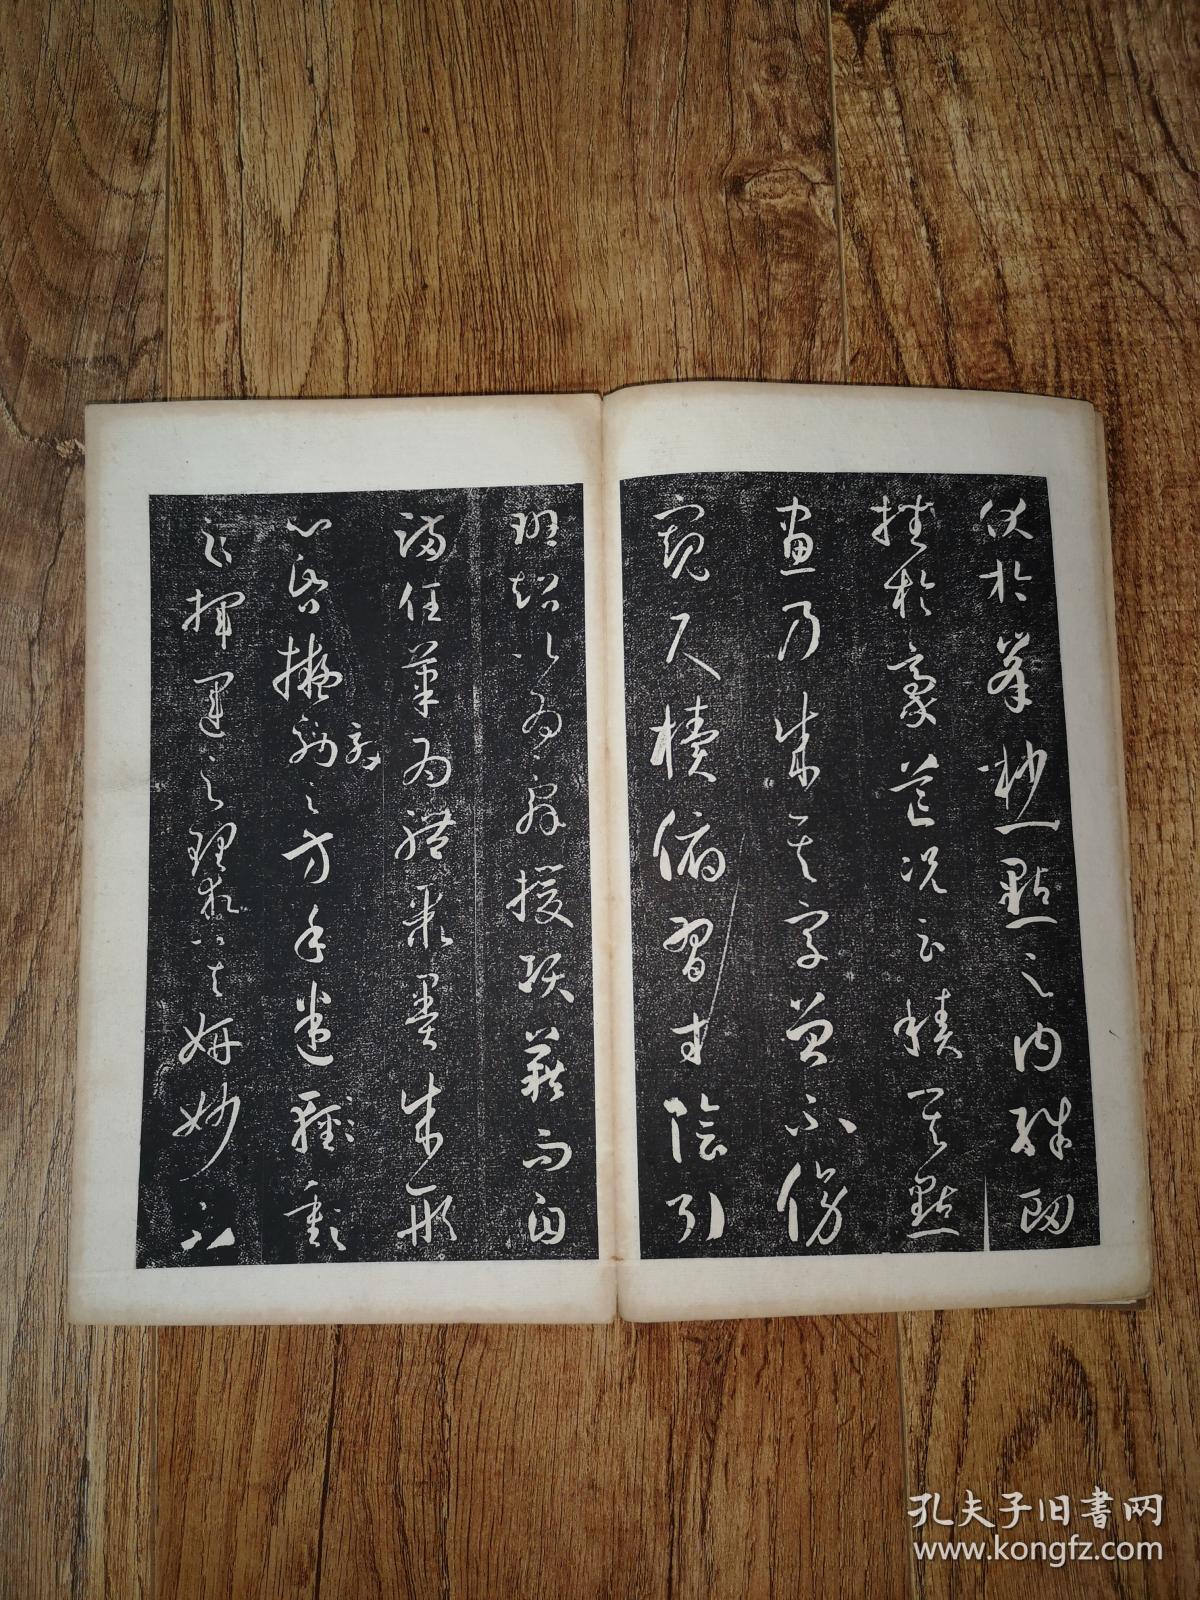 伏於峯杪一點之内殊衂
挫於豪芒況云積其點
畫乃成其字曾不傍
窺尺牘俯習寸陰引
班超以為辭援項籍而自
滿任筆為體聚墨成形
心昏擬効之方手迷輕重
之揮運之理求其妍妙不
孔夫子旧書网
www.kongfz.com